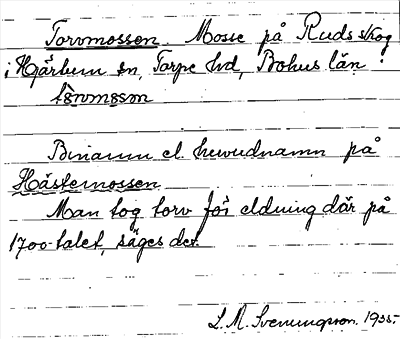 Torvmossen. Mosse på Ruds skog
i Hjärtum sn, Torpe hd, Bohus län:
Binamn el. huvudnamn på
Hästemossen
Man tog torv för eldning där på
1700-talet, säges det.
L. M. Svenungsson. 1935.